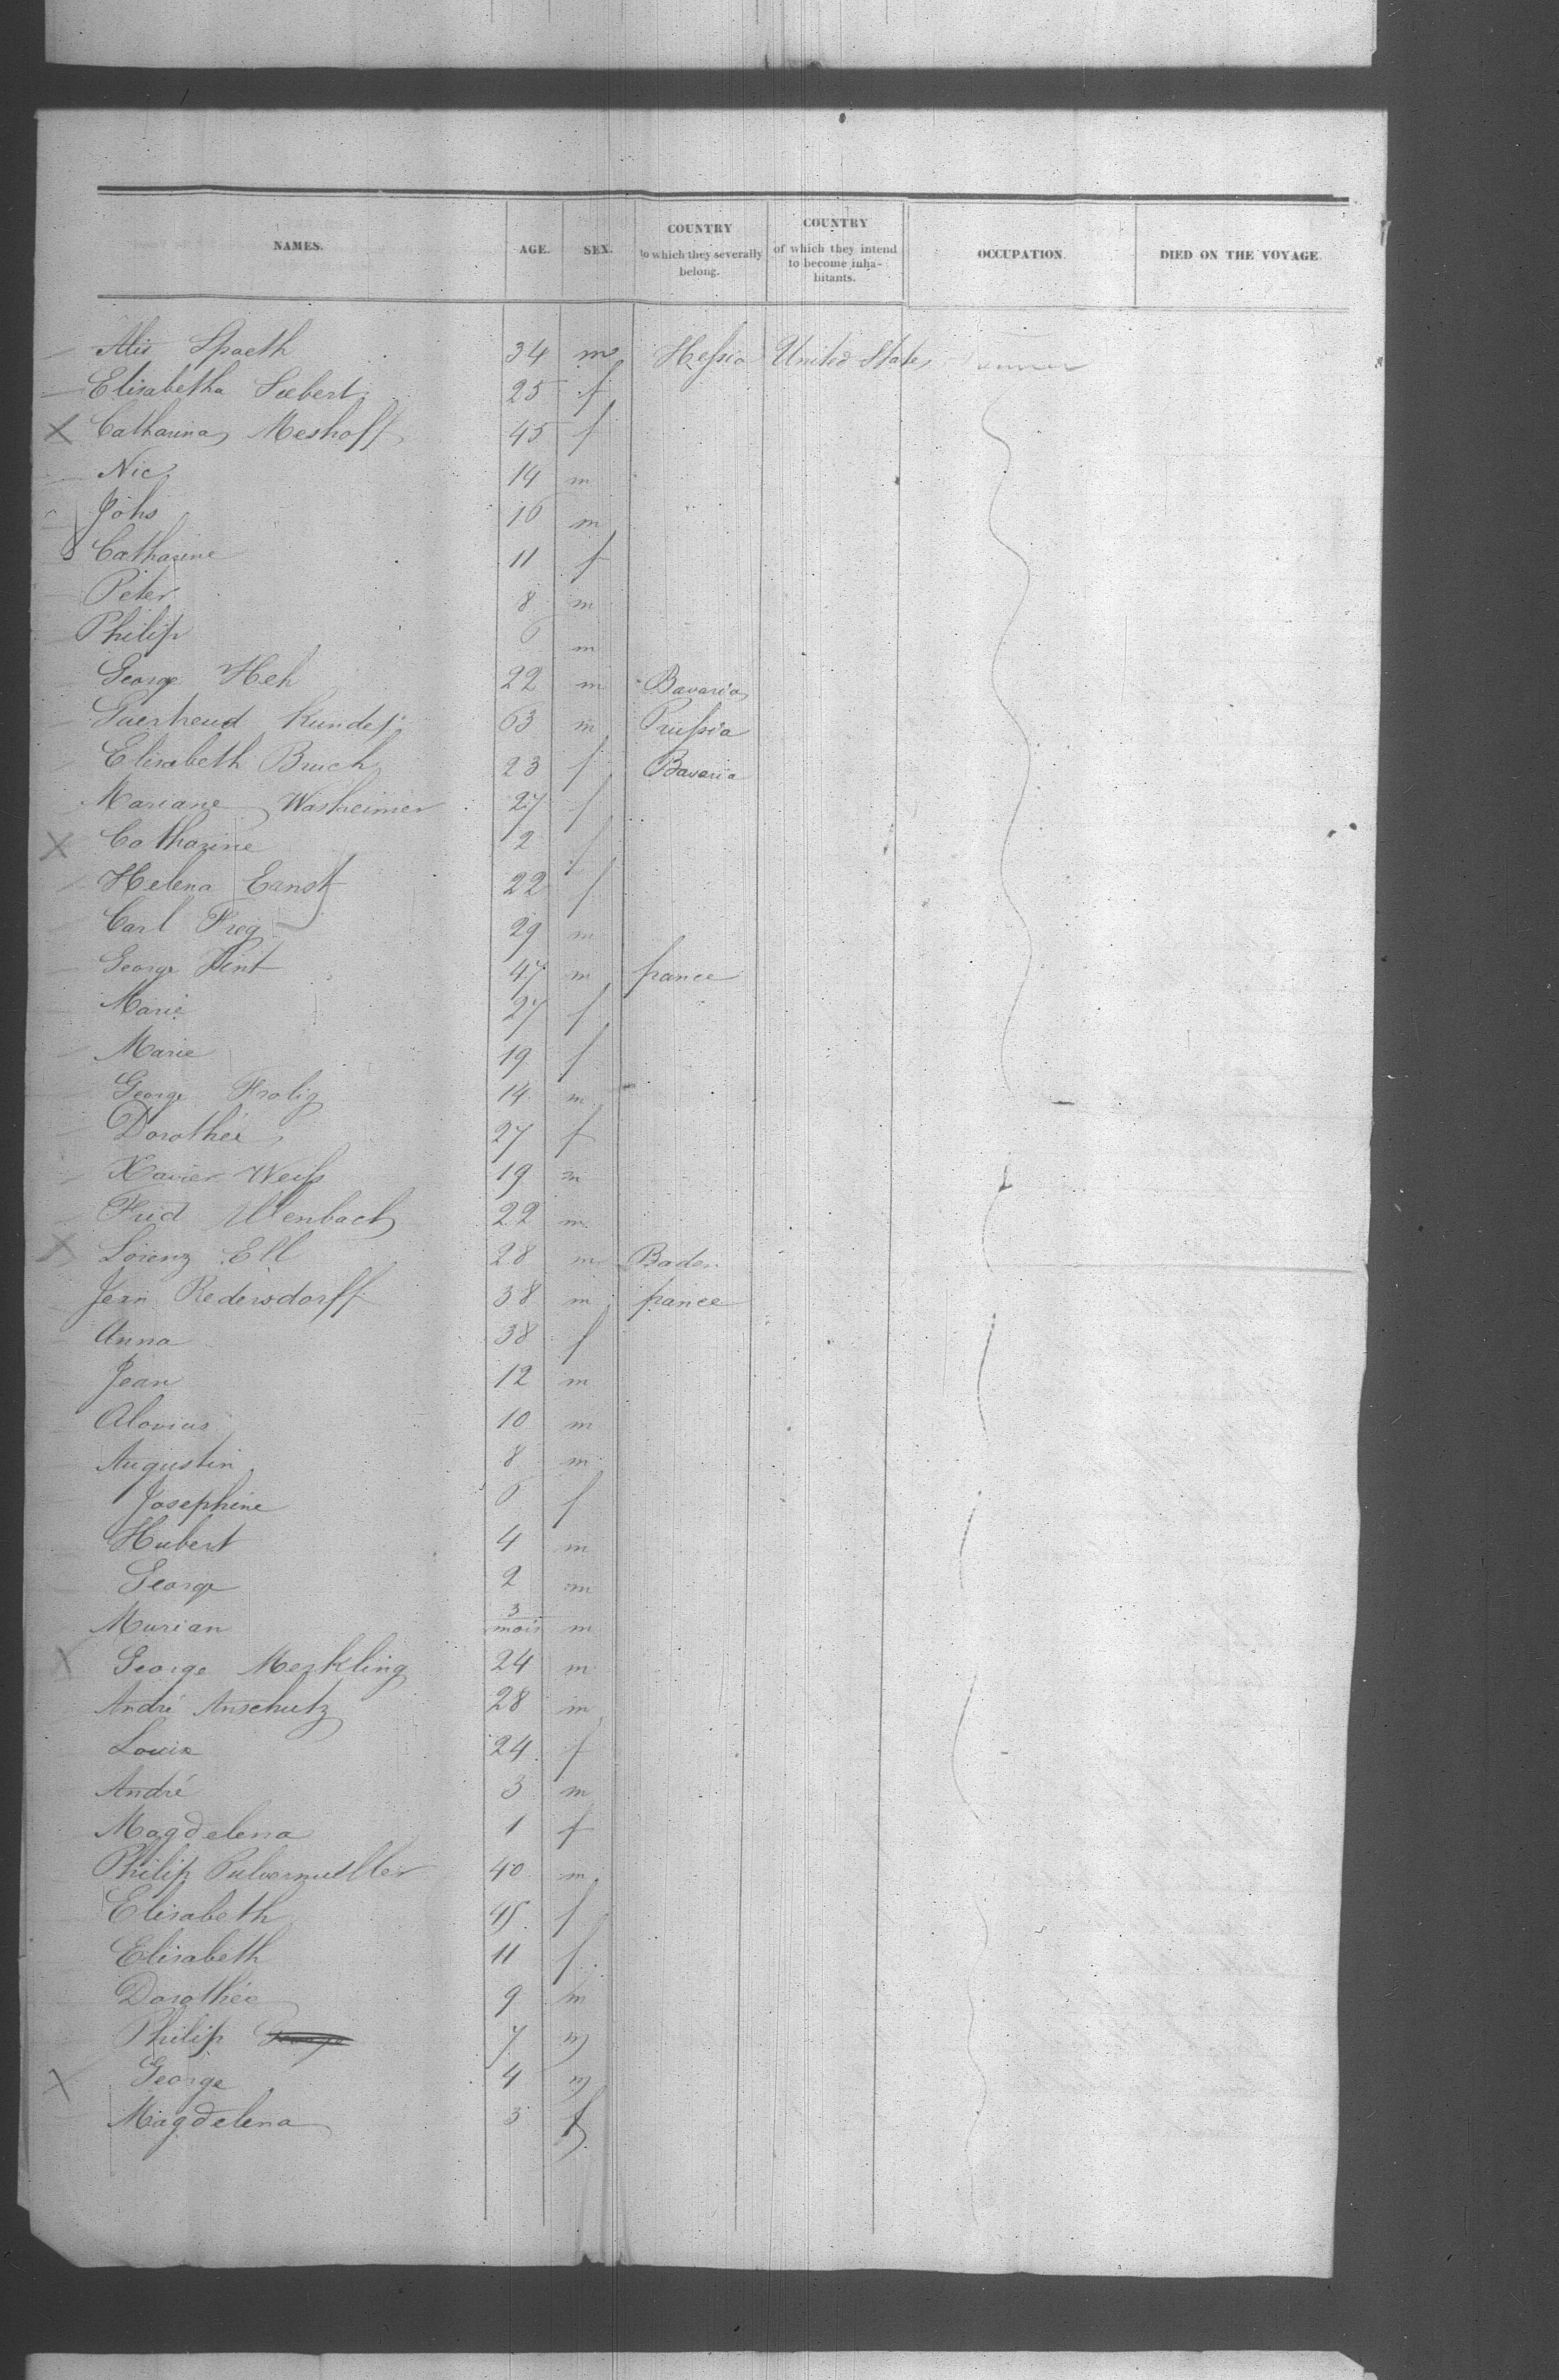 NAMES. AGE. SEX. COUNTRY to which they severally belong. COUNTRY of which they intend to become inhabitants. OCCUPATION. DIED ON THE VOYAGE.
Alis Spaeth 34 m Hessia United States
Elisabetha Seebert 25 f
Catharina Meshoff 45 f
Nic 14 m
Johs 16 m
Catharine 11 f
Peter 8 m
Philip 6 m
George Heh 22 m Bavaria
63 m Prussia
Elisabeth Bruch 23 f Bavaria
Mariane Washeimer 27 f
Catharine 2 f
Helena Ernst 22 f
Carl Frey 29 m
George Pint 47 m france
Marie 27 f
Marie 19 f
George Frolig 14 m
Dorothée 27 f
Xavier Weiss 19 m
Fried Ulenbach 22 m
Lorenz Ell 28 m Baden
Jean Redersdorff 38 m france
Anna 38 f
Jean 12 m
Aloyius 10 m
Augustin 8 m
Josephine 6 f
Hubert 4 m
George 2 m
Murian 3 mois m
George Merkling 24 m
André Anschutz 28 m
Louise 24 f
André 3 m
Magdelena 1 f
Philip Pulvermuller 40 m
Elisabeth 45 f
Elisabeth 11 f
Dorothée 9 m
Philip 7 m
George 4 m
Magdelena 3 f